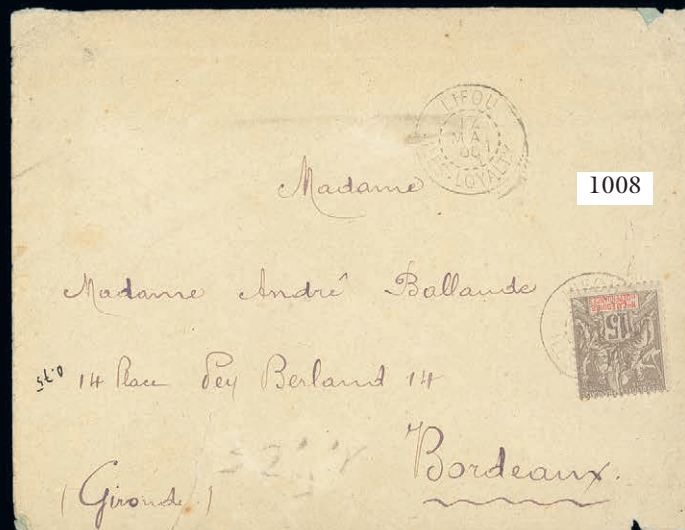 LIFOU
17
MAI
ILES LOYALTY
1008
Madame
Madame André Ballande
15
14 Place Pey Berland 14
Bordeaux.
(Gironde)